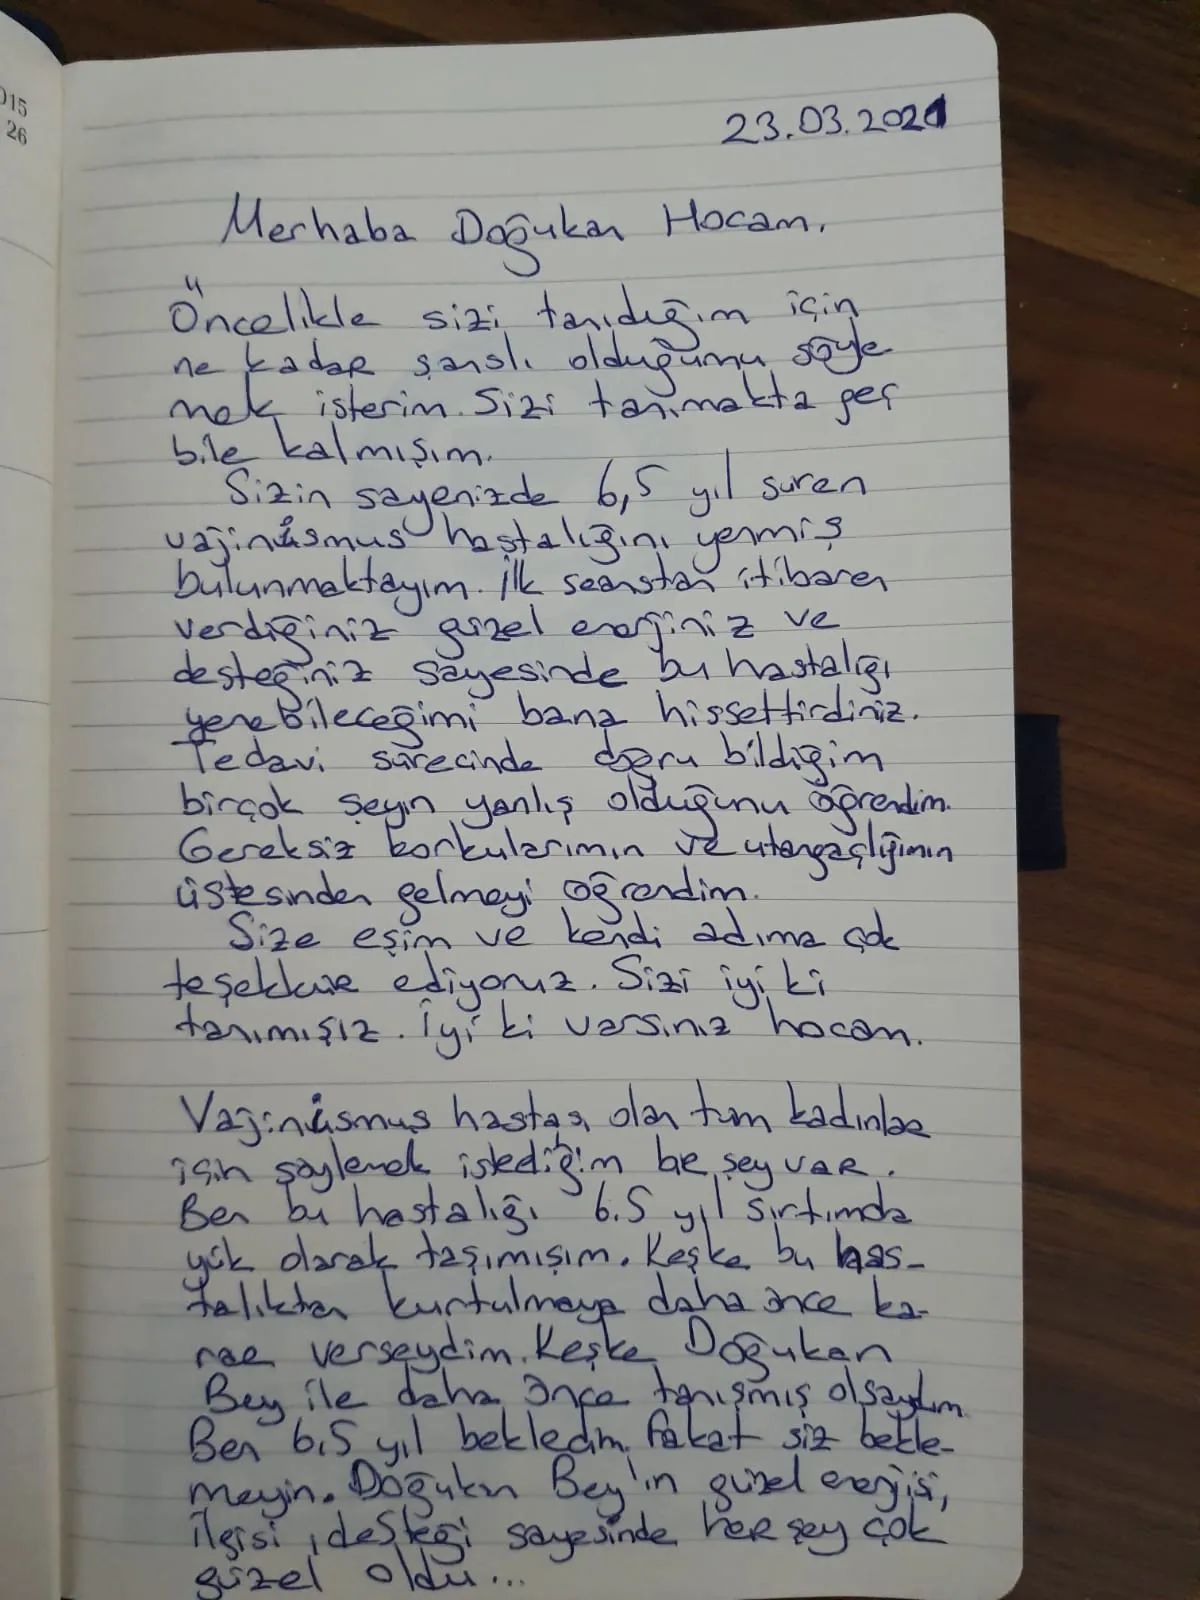 015
26
23.03.2021
Merhaba Doğukan Hocam,
Öncelikle sizi tanıdığım için
ne kadar şanslı olduğumu söyle
mek isterim. Sizi tanımakta geç
bile kalmışım.
Sizin sayenizde 6,5 yıl süren
vajinismus hastalığını yenmiş
bulunmaktayım. İlk seanstan itibaren
verdiğiniz güzel enerjiniz ve
desteğiniz sayesinde bu hastalığı
yenebileceğimi bana hissettirdiniz.
Tedavi sürecinde doğru bildiğim
birçok şeyin yanlış olduğunu öğrendim.
Gereksiz korkularımın ve utangaçlığımın
üstesinden gelmeyi öğrendim.
Size eşim ve kendi adıma çok
teşekkür ediyoruz. Sizi iyi ki
tanımışız. İyi ki varsınız hocam.
Vajinismus hastası olan tüm kadınlar
için söylemek istediğim bir şey var.
Ben bu hastalığı 6.5 yıl sırtımda
yük olarak taşımışım. Keşke bu has-
talıktan kurtulmaya daha önce ka-
rar verseydim. Keşke Doğukan
Bey ile daha önce tanışmış olsaydım
Ben 6,5 yıl bekledim. Fakat siz bekle-
meyin. Doğukan Bey'in güzel enerjisi,
ilgisi, desteği sayesinde her şey çok
güzel oldu...